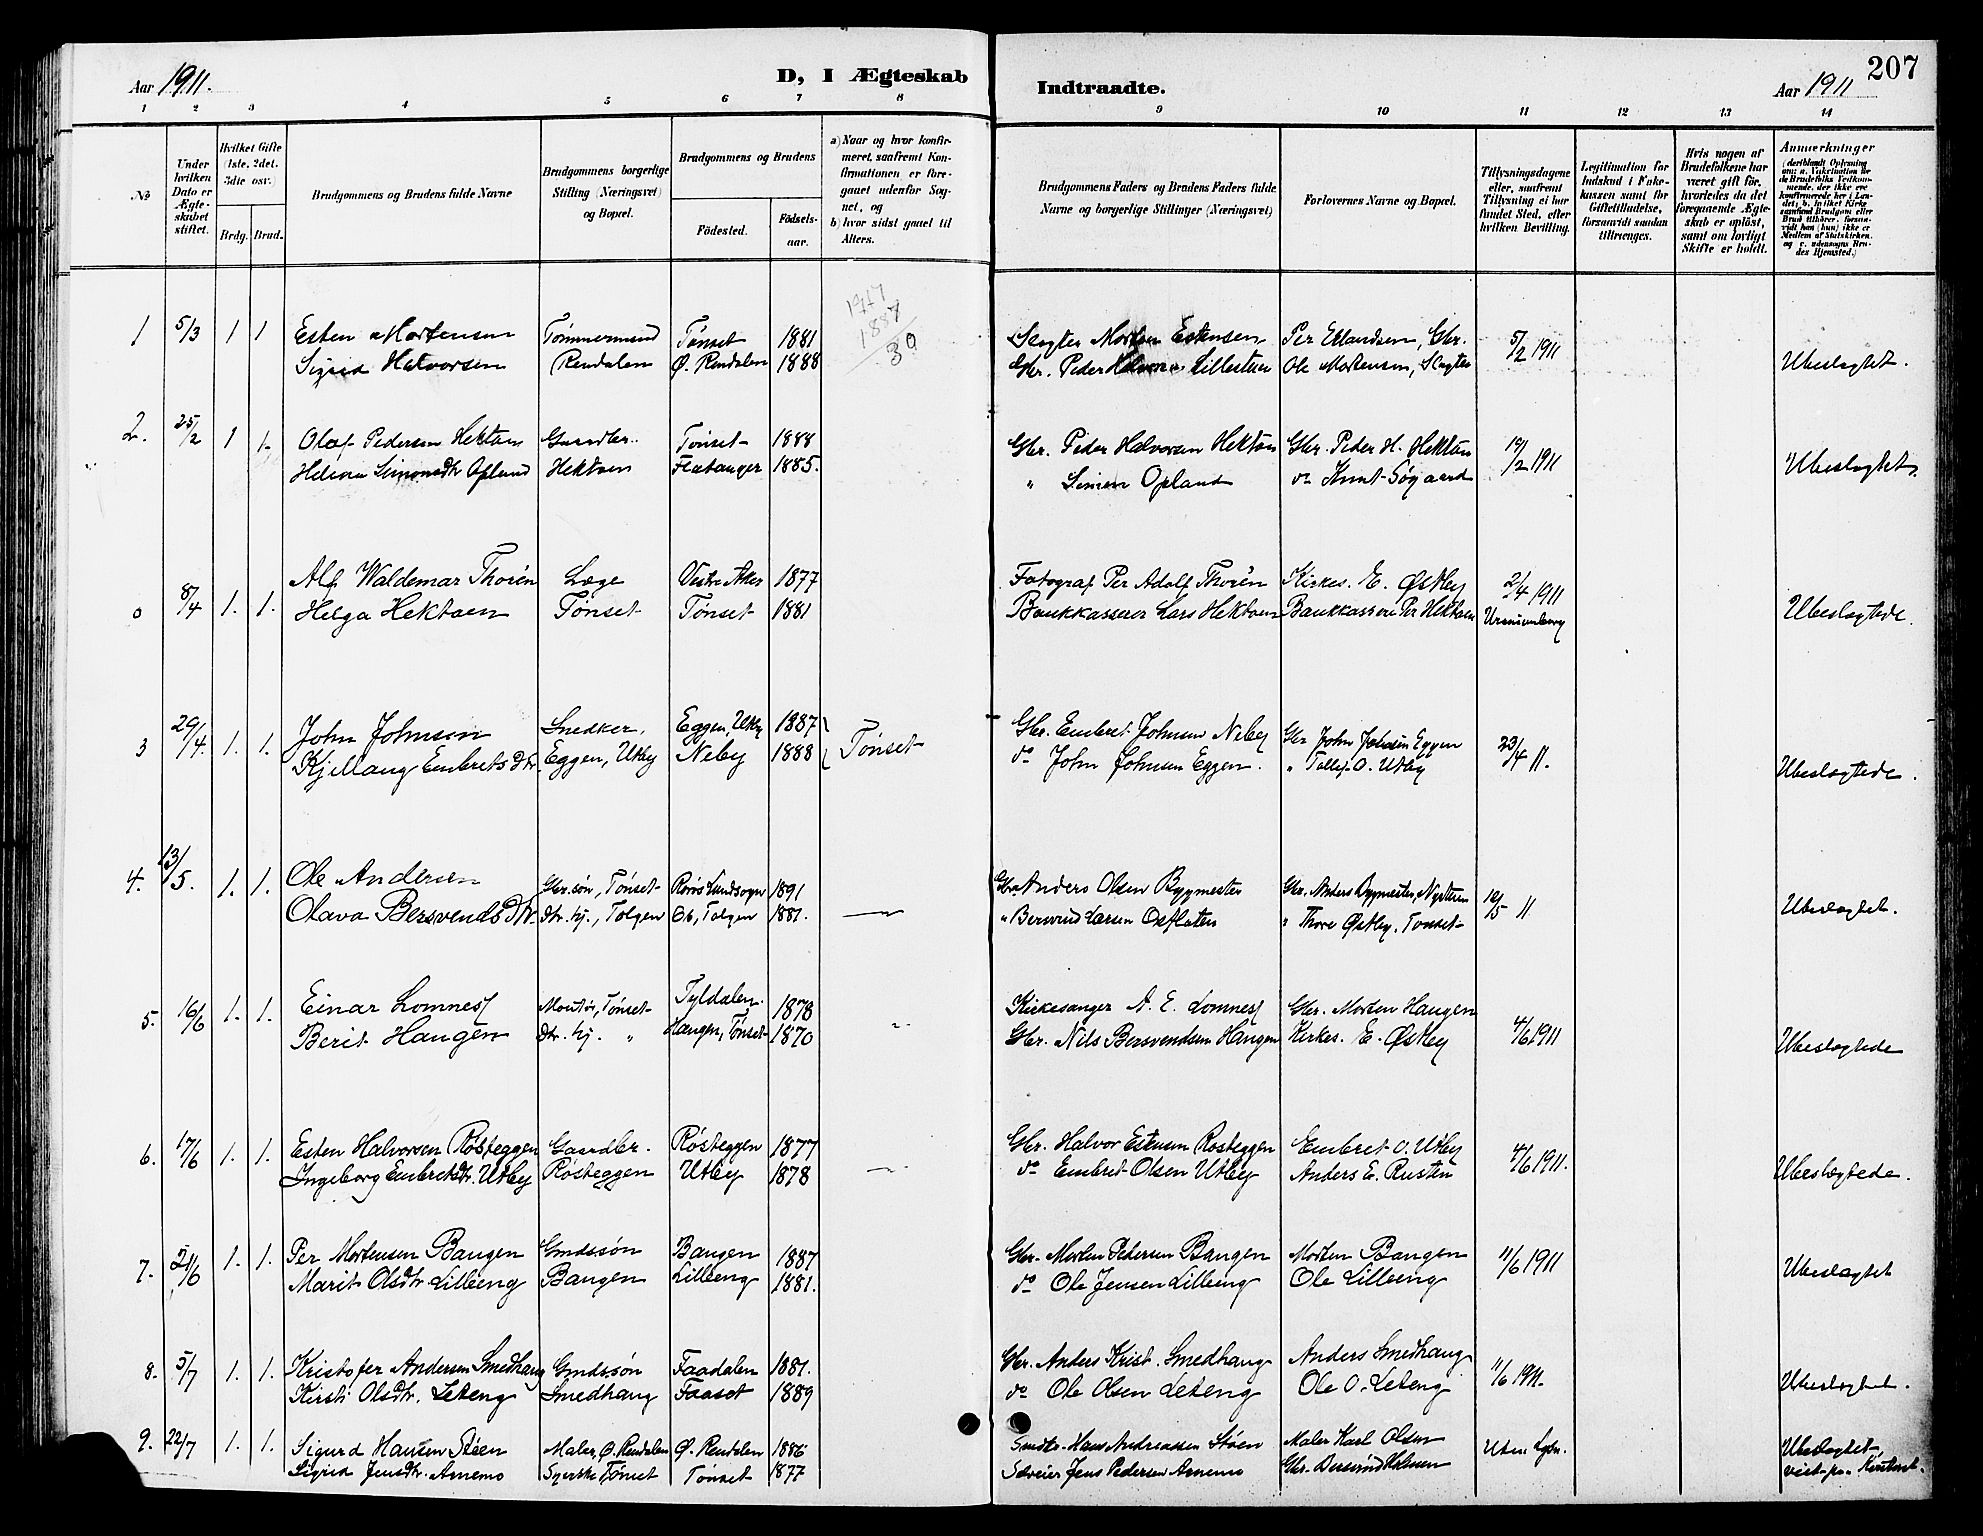 207
Aar 1911.
D, I Ægteskab
Indtraadte.
Aar 1911
1 2 3 4 5 6 7 8 9 10 11 12 13 14
No
Under hvilken Dato er Ægteskabet stiftet.
Hvilket Gifte (1ste, 2det, 3die osv.)
Brdg. Brud.
Brudgommens og Brudens fulde Navne
Brudgommens borgerlige Stilling (Næringsvei) og Bopæl.
Brudgommens og Brudens
Fødested.
Fødselsaar.
a) Naar og hvor konfirmeret, saafremt Konfirmationen er foregaaet udenfor Sognet, og
b) hvor sidst gaaet til Alters.
Brudgommens Faders og Brudens Faders fulde Navne og borgerlige Stillinger (Næringsvei)
Forlovernes Navne og Bopæl.
Tillysningsdagene eller, saafremt Tillysning ei har fundet Sted, efter hvilken Bevilling.
Legitimation for Indskud i Enkekassen samt for Giftetilladelse, forsaavidt saadan tiltrænges.
Hvis nogen af Brudefolkene har været gift før, hvorledes da det foregaaende Ægteskab er opløst, samt om lovligt Skifte er holdt.
Anmærkninger
1 5/3 1 1 Esten Mortensen Tømmermand Tønset 1881 Slagter Morten Estensen Per Erlandsen, Gbr. 5/2 1911
Sigrid Halvorsen Rendalen Ø. Rendalen 1888 Gbr. Peder Ole Mortensen, Slagter Ubeslægtet.
1887
30
2. 25/2 1 1. Olaf Pedersen Hektoen Gaardbr. Tønset 1888 Gbr. Peder Halvorsen Hektoen Gbr. Peder H. Hektoen 19/2 1911
Simonsdtr Opland Hektoen Flatanger 1885. " Simon Opland do Knut Søgaard Ubeslægtet.
0 8/4 1. 1. Alf Waldemar Thorén Læge Vestre Aker 1877 Fotograf Per Adolf Thorén Kirkes. E. Østby 2/4 1911
Helga Hektoen Tønset Tønset 1881 Bankkasserer Lars Hektoen Bankkasserer Per Hektoen Uranienborg Ubeslægtede.
3 29/4. 1. 1. John Johnsen Snedker, Eggen, Utby 1887 Gbr. Embret Johnsen Neby Gbr John Johnsen Eggen 23/4 11.
Kjellaug Embretsdtr. Eggen, Utby Neby 1888 Tønset do John Johnsen Eggen. " Tollef O. Utby Ubeslægtede.
4. 13/5. 1. 1. Ole Andersen Gbr.søn, Tønset Røros Landsogn 1891 Gbr. Anders Olsen Bygmester Gbr. Anders Bygmester, 11
Olava Bersvendsdtr. Dtr. hj., Tolgen Os, Tolgen 1881. — " Bersvend Larsen Osfloten " Thore Østby, Tønset Ubeslægtet.
5. 16/6 1. 1. Einar Lomness Montør, Tønset Tyldalen 1878 Kirkesanger A. E. Lomness Gbr. Morten Haugen
Berit Haugen Dtr. hj. " Haugen, Tønset 1870 " Gbr. Nils Bersvendsen Haugen Kirkes. E. Østby 4/6 1911 Ubeslægtede
6. 17/6 1. 1. Esten Halvorsen Røsteggen Gaardbr. Røsteggen 1877 Gbr. Halvor Estensen Rosteggen Embret O. Utby 4/6 1911.
Ingeborg Embretsdtr. Utby Rosteggen Utby 1878 — do Embret Olsen Utby Anders E. Rusten Ubeslægtede.
7. 21/6 1. 1. Per Mortensen Bangen Gmdssøn Bangen 1887 Gbr. Morten Pedersen Bangen Morten Bangen 11/6 1911
Marit Olsdtr Lilleeng Bangen Lilleeng 1881. do Ole Jensen Lilleeng Ole Lilleeng Ubeslægtet
8. 5/7 1. 1. Kristofer Andersen Smedhaug Gmdssøn Faadalen 1881. Gbr. Anders Krist. Smedhaug Anders Smedhaug 11/6 1911.
Kirsti Olsdtr. Leteng Smedhaug Faaset 1889 do Ole Olsen Leteng Ole O. Leteng Ubeslægtet.
9. 22/7 1. 1. Sigurd Hansen Støen Maler, Ø. Rendalen Ø. Rendalen 1886 Hans Andreassen Støen Maler Karl Olsen Uten Lysn.
Sigrid Jensdtr. Arnemo Syerske, Tønset Tønset 1877 Jens Pedersen Arnemo Gbr. Bersvend Holmen Ubeslægtet
viet paa Kontoret.